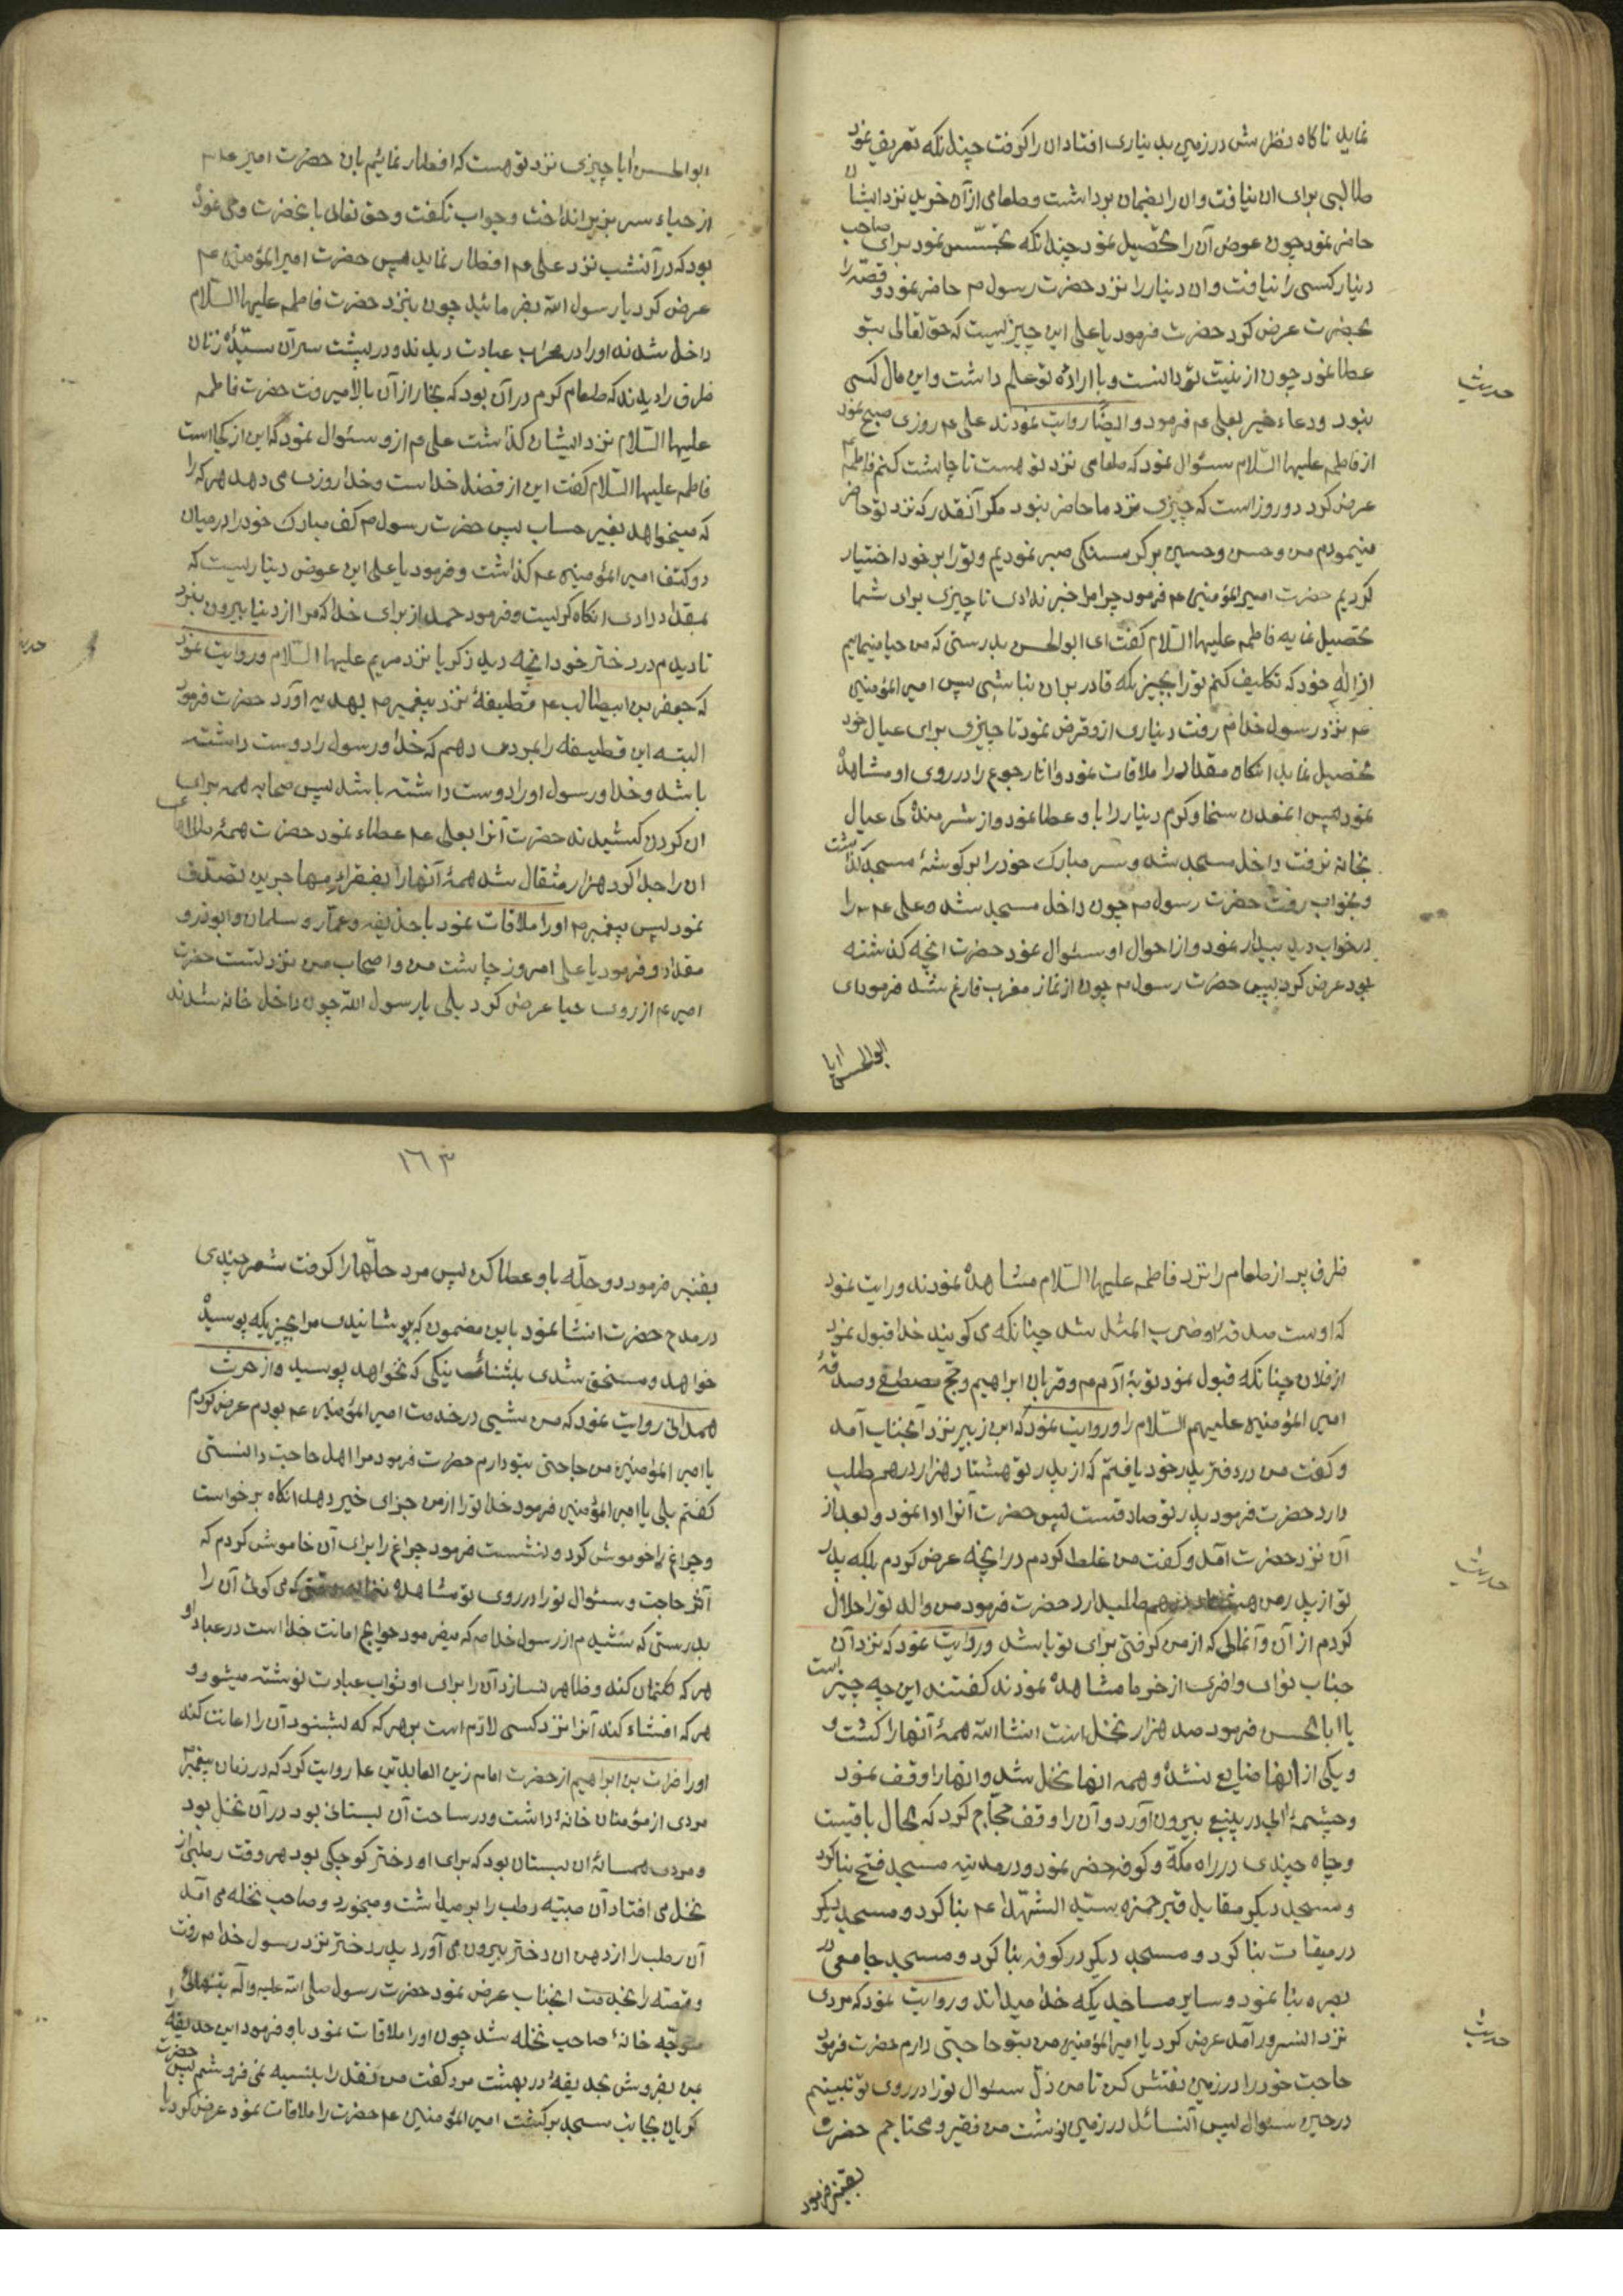 نماید ناکاه نظرش در زمین بدیناری افتاد ان را کرفت چندانکه تعریف نمود
طالبی برای ان نیافت وان را بضمان برداشت وطعامی از آن خرید نزد ایشان
حاضر نمود چون عوض آن را تحصیل نمود چندانکه تجسّس نمود برای صاحب
دینار کسی را نیافت وان دینار را نزد حضرت رسول م حاضر نمود و قصّه را
بحضرت عرض کرد حضرت فرمود یا علی این چیزیست که حق تعالی بتو
عطا نمود چون از نیت تو دانست و با ارادهٔ تو علم داشت واین مال کسی
نبود ودعاء خیر بعلی م فرمود وایضًا روایت نمودند علی م روزی صبح نمود
از فاطمه علیها السّلام سئوال نمود که طعامی نزد تو هست تا چاشت کنم فاطمه
عرض کرد دو روز است که چیزی نزد ما حاضر نبود مکر آنقدر که نزد تو حاضر
مینمودم من وحسن وحسین بر کرسنکی صبر نمودیم وتو را بر خود اختیار
کردیم حضرت امیرالمؤمنین م فرمود چرا مرا خبر ندادی تا چیزی برای شما
تحصیل نمایم فاطمه علیها السّلام کفت ای ابوالحسن بدرستی که من حیا مینمایم
از اله خود که تکلیف کنم تو را بچیزیکه قادر بران نباشی پس امیرالمؤمنین
م نزد رسول خدا م رفت دیناری ازو قرض نمود تا چیزی برای عیال خود
تحصیل نماید انکاه مقداد را ملاقات نمود واثار جوع را در روی او مشاهدهٔ
نمود پس ا نمعدن سخا وکرم دینار را باو عطا نمود واز شرمندهٔ کی عیال
بخانه نرفت داخل مسجد شد وسر مبارک خود را بر کوشهٔ مسجد کذاشت
وبخواب رفت حضرت رسول م چون داخل مسجد شد وعلی م را
درخواب دید بیدار نمود واز احوال او سئوال نمود حضرت انچه کذشته
بود عرض کرد پس حضرت رسول م چون از نماز مغرب فارغ شد فرمود ای
ابوالحسن ایا
حدیث
ابوالحسن ایا چیزی نزد تو هست که افطار نمائیم بان حضرت امیر علم
از حیاء سر بزیر انداخت وجواب نکفت وحق تعالی باعضرت وحی نمود
بود که در آنشب نزد علی م افطار نماید پس حضرت امیرالمؤمنین م
عرض کرد یا رسول الله بفرمائید چون بنزد حضرت فاطمه علیها السّلام
داخل شدند او را در محراب عبادت دیدند ودر پشت سر آن ستیدهٔ زنان
ظرفی را دیدند که طعام کرم در آن بود که بخار از آن بالا میرفت حضرت فاطمه
علیها السّلام نزد ایشان کذاشت علی م ازو سئوال نمود که این از کجا است
فاطمه علیها السّلام کفت این از فضل خدا ست وخدا روزی می دهد هر که را
که میخواهد بغیر حساب پس حضرت رسول م کف مبارک خود را در میان
دو کتف امیرالمؤمنین م کذاشت وفرمود یا علی این عوض دیناریست که
بمقداد دادی انکاه کریست وفرمود حمد از برای خدا که مرا از دنیا بیرون نبرد
تا دیدم در دختر خود انچه دید زکریا نزد مریم علیها السّلام وروایت نمود
که جعفر بن ابیطالب م قطیفهٔ نزد پیغمبر م بهدیه آورد حضرت فرمود
البته این قطیفه را بمردی دهم که خدا ورسول را دوست داشته
باشد وخدا ورسول او را دوست داشته باشد پس صحابه همه برای
ان کردن کشیدند حضرت آنرا بعلی م عطاء نمود حضرت همهٔ طلاهای
ان را جدا کرد هزار مثقال شد همهٔ آنها را بفقراء مهاجرین تصدّق
نمود پس پیغمبر م او را ملاقات نمود با حذیفه وعمّار وسلمان وابوذر و
مقداد وفرمود یا علی امروز چاشت من واصحاب من نزد تست حضرت
امیر م از روی حیا عرض کرد بلی یا رسول الله چون داخل خانه شدند
ظرف پر از طعام را نزد فاطمه علیها السّلام مشاهدهٔ نمودند وروایت نمود
که اوست صدقهٔ او ضرب المثل شد چنانکه می کویند خدا قبول نمود
از فلان چنانکه قبول نمود توبهٔ آدم م وقربان ابراهیم وحج مصطفی وصدقهٔ
امیرالمؤمنین علیهم السّلام را وروایت نمود که ابن زبیر نزد آنجناب آمد
وکفت من در دفتر پدر خود یافتم که از پدر تو هشتاد هزار درهم طلب
دارد حضرت فرمود پدر تو صادقست پس حضرت آنرا ادا نمود وبعد از
آن نزد حضرت آمد وکفت من غلط کردم در انچه عرض کردم بلکه پدر
تو از پدر من طلبدارد حضرت فرمود من والد تو را حلال
کردم از آن وآنمالی که از من کرفتی برای تو باشد وروایت نمود که نزد آن
جناب نواں وافری از خرما مشاهدهٔ نمودند کفتند این چه چیز است
یا ابا الحسن فرمود صد هزار نخل است انشا الله همهٔ آنها را کشت و
ویکی از انها ضایع نشد وهمه انها نخل شد وانها را وقف نمود
وچشمهٔ ابی در ینبع بیرون آورد وآن را وقف حجّاج کرد که تحال باقیست
وچاه چندی در راه مکّه وکوفه حضر نمود ودر مدینه مسجد فتح بنا کرد
ومسجد دیکر مقابل قبر حمزه سیّد الشهّدا م بنا کرد ومسجد دیکر
در میقات بنا کرد ومسجد دیکر در کوفه بنا کرد ومسجد جامعی در
بصره بنا نمود وسایر مساجدیکه خدا میداند وروایت نمود که مردی
نزد انسرور آمد عرض کرد یا امیرالمؤمنین من بتو حاجتی دارم حضرت فرمود
حاجت خود را در زمین نقش کن تا من ذلّ سئوال تو را در روی تو نبینم
در حین سئوال پس آنسائل در زمین نوشت من فقیر ومحتاجم حضرت
بقنبر فرمود
حدیث
حدیث
١٦٣
بقنبر فرمود دو حلّه باو عطا کن پس مرد حلّها را کرفت شعر چندی
در مدح حضرت انشا نمود باین مضمون که پوشانیدی مرا بچیزیکه پوسیدهٔ
خواهد ومستحق شدی بثنای نیکی که نخواهد پوسید واز حرث
همدانی روایت نمود که من شبی در خدمت امیرالمؤمنین م بودم عرض کردم
یا امیرالمؤمنین من حاجتی بتو دارم حضرت فرمود مرا اهل حاجت دانستی
کفتم بلی یا امیرالمؤمنین فرمود خدا تو را از من جزای خیر دهد انکاه برخواست
وچراغ را خوموش کرد ونشست فرمود چراغ را برای آن خاموش کردم که
آثر حاجت وسئوال تو را در روی تو مشاهدهٔ که می کوئی آن را
بدرستی که شنیدم از رسول خدا م که میفرمود حوایج امانت خدا است در عباد او
هر که کتمان کند وظاهر نسازد آن را برای او ثواب عبادت نوشته میشود و
هر که افشاء کند آنرا نزد کسی لازم است بر هر که که بشنود آن را اعانت کند
او را ضرات بن ابراهیم از حضرت امام زین العابدین علم روایت کرد که در زمان پیغمبر
مردی از مؤمنان خانهٔ داشت ودر ساحت آن بستانی بود در آن نخل بود
ومردی همسائهٔ ان بستان بود که برای او دختر کوچکی بود هر وقت رطبی از
نخل می افتاد آن صبیّه رطب را بر میداشت ومیخورد وصاحب نخله می آمد
آن رطب را از دهن ان دختر بیرون می آورد پدر دختر نزد رسول خدا م رفت
وقصّه را بخدمت انجناب عرض نمود حضرت رسول صلی الله علیه وآله بتنهائی
متوجّه خانهٔ صاحب نخله شد چون او را ملاقات نمود باو فرمود این حدیقهٔ
بمن بفروش بحدیقهٔ در بهشت مرد کفت من نقد را بنسیه نمی فروشم پس حضرت
کریان بجانب مسجد برکشت امیرالمؤمنین م حضرت را ملاقات نمود عرض کرد یا